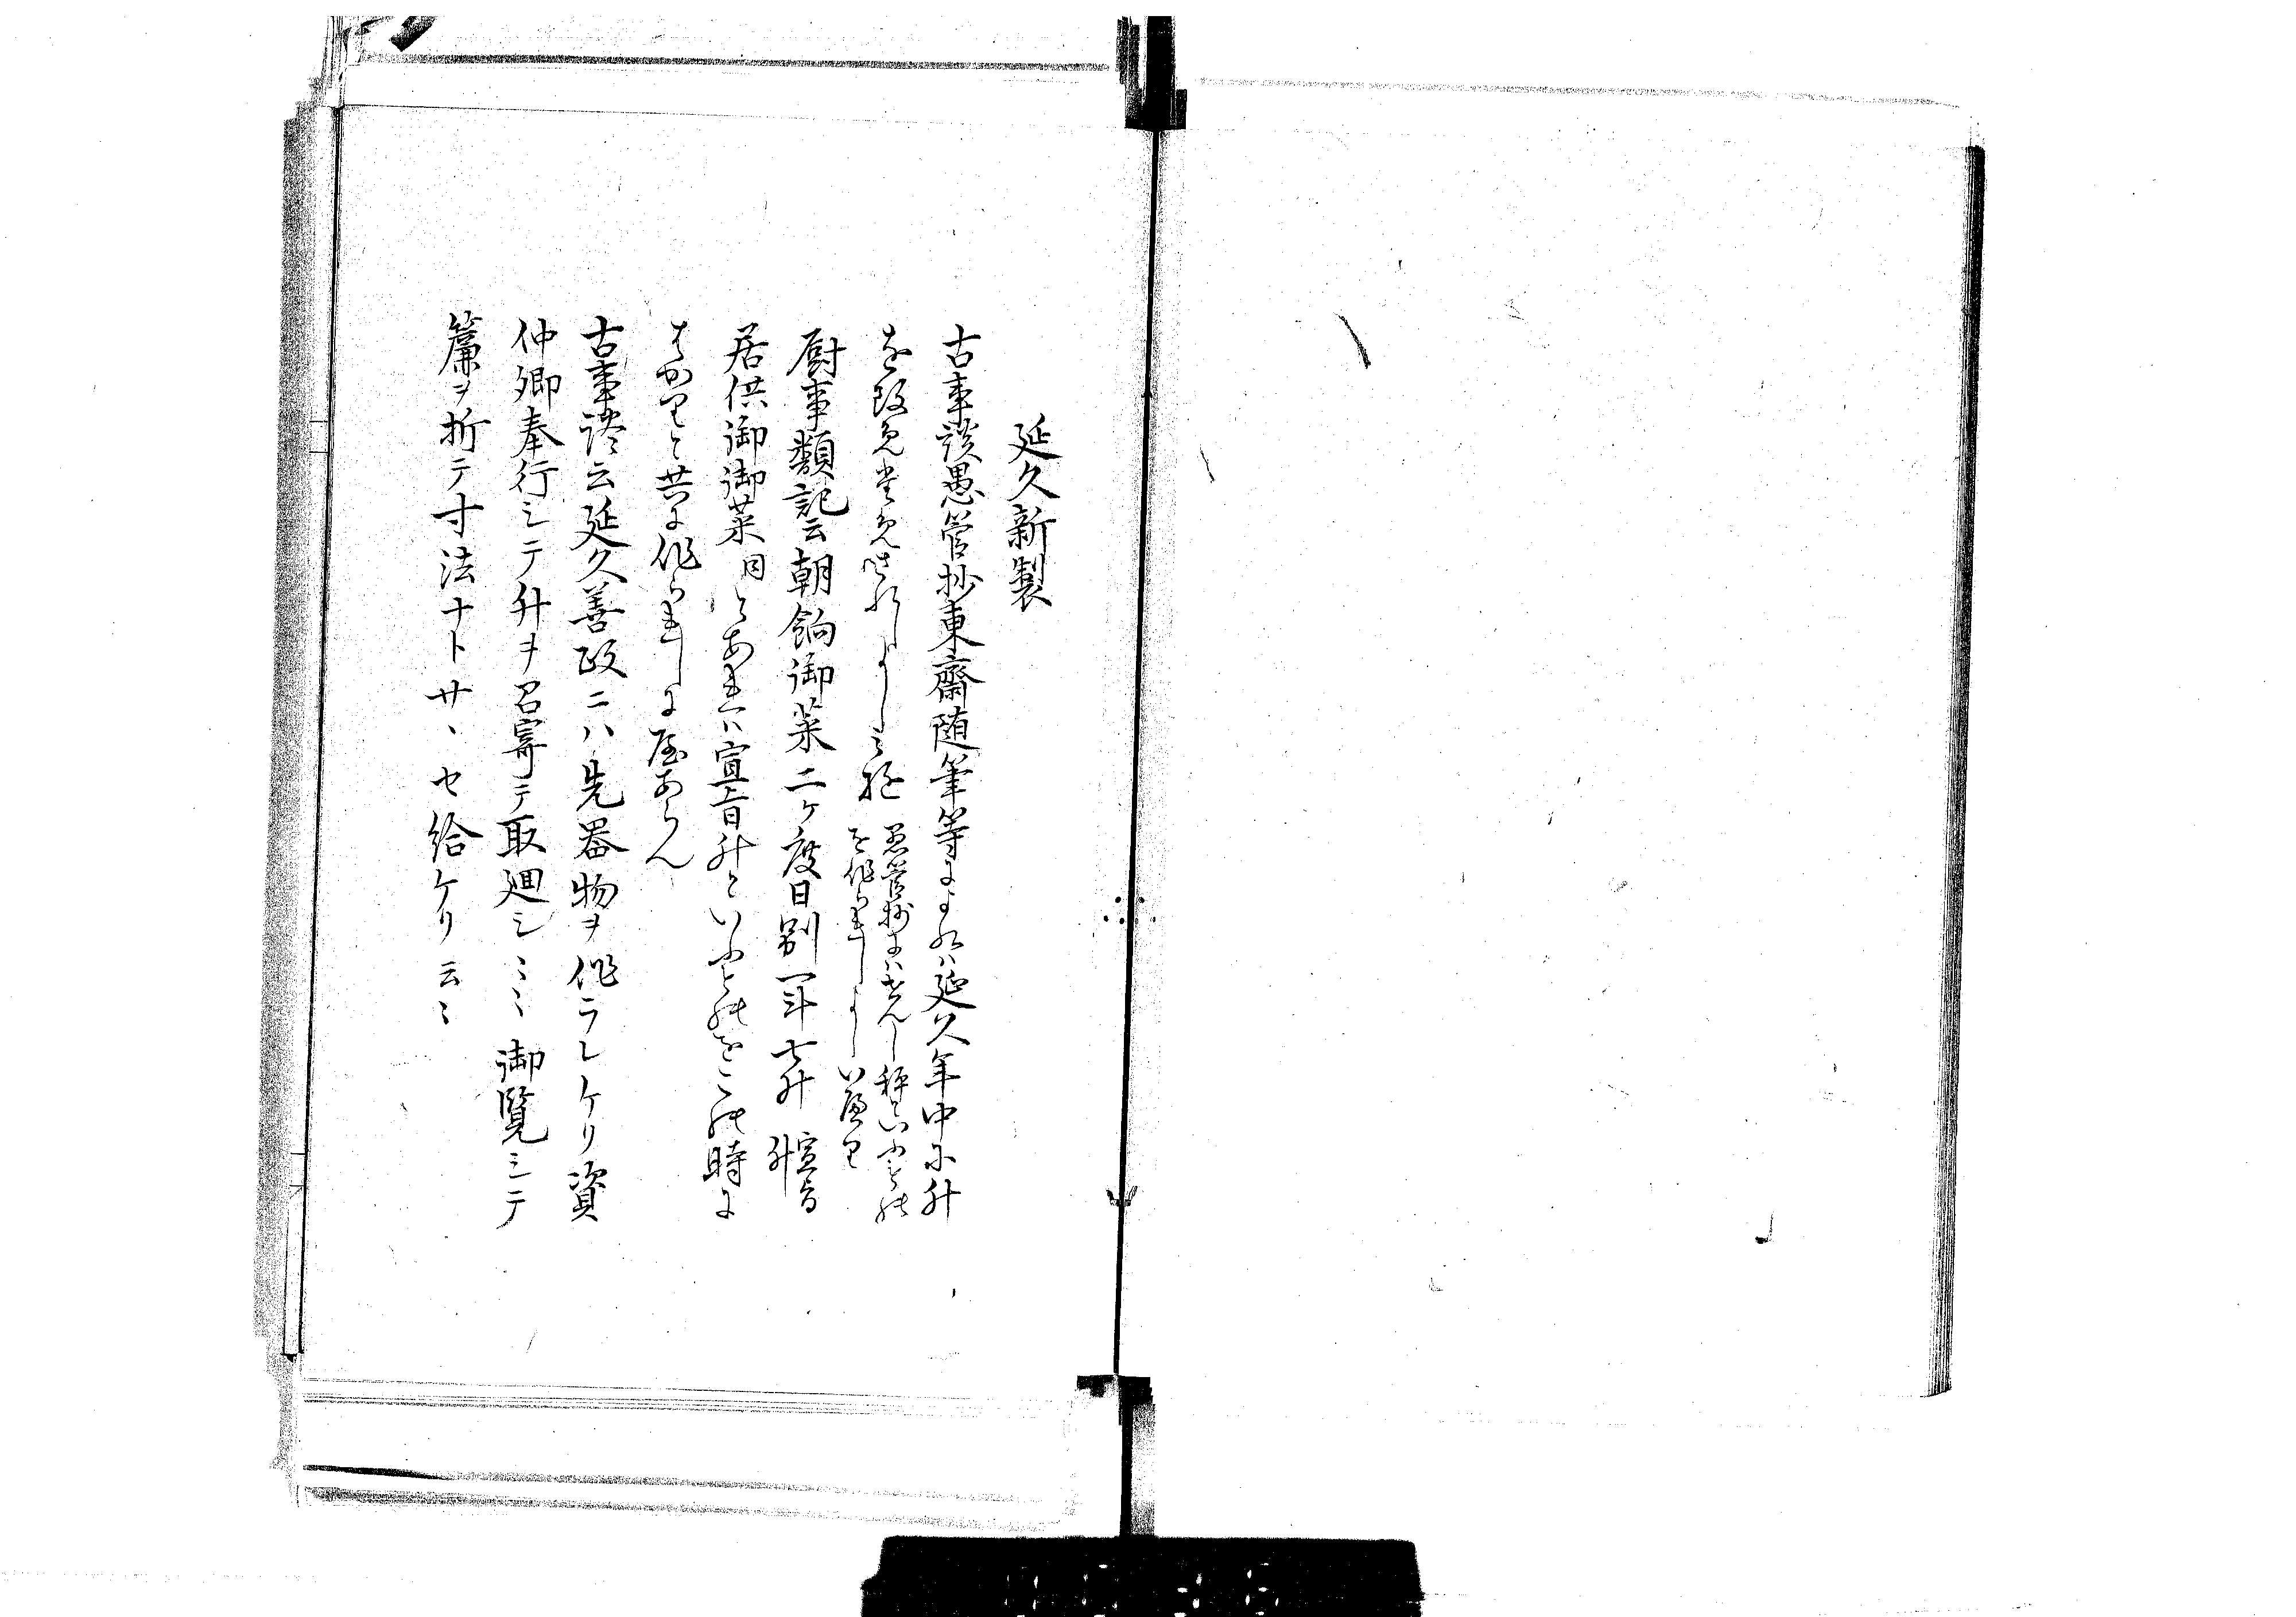 延久新製
古事談愚管抄東齋随筆等によれハ延久年中に升
を改め定め
愚管抄にハせんし称といふもの
を作られしよしいへり
厨事類記云朝餉御菜二ケ度日別一斗七升 宣旨
升
居供御御菜同とあれハ宣旨升といふもの
時に
はかりと共に作られしに
あらん
古事談云延久善政ニハ先器物ヲ作ラレケリ資
仲卿奉行シテ升ヲ召寄テ取廻シミミ御覧シテ
簾ヲ折テ寸法ナトサヽセ給ケリ云ミ